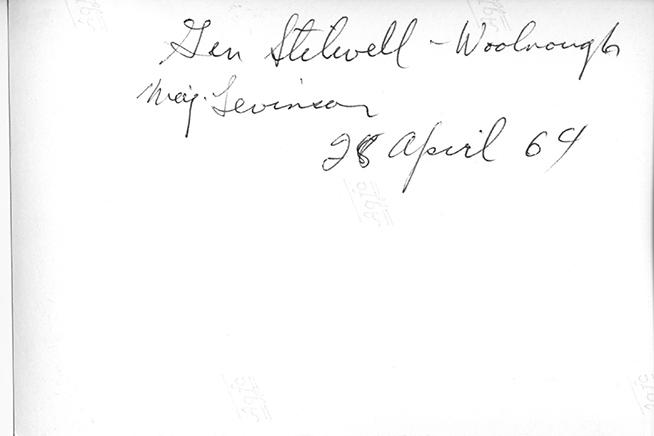 Gen Stilwell - Woolnough
Maj. Levinson
28 April 64